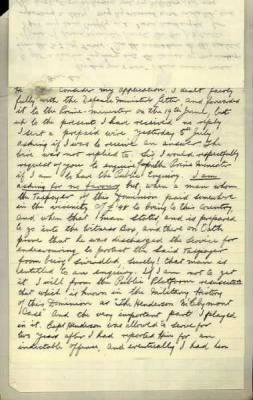 consider my application I dealt fairly
fully with the Defence Minister's letter and forwarded
it to the Prime Minister on the 19th June, but
up to the present I have received no reply
I sent a prepaid wire yesterday 5th July
asking if I was to receive an answer the
wire was not replied to. Sir I would respectfully
request of you to enquire from the Prime Minister
if I am to have the Public Enquiry. I am
asking for no favours but, when a man whom
the Taxpayer of this Dominion paid somewhere
in the amount of to bring to this Country,
and when that man states and is prepared
to go into the Witness Box, and there on Oath
prove that he was discharged the Service for
endeavouring to protect the said Taxpayer
from being swindled, surely! that man is
entitled to an enquiry. If I am not to get
it I will from the Public Platform
that which is known in the Military History
of this Dominion as
Case" and the very important part I played
in it. Capt Henderson was allowed to serve for
two years after I had reported him for an
indictable offence, and eventually I had him